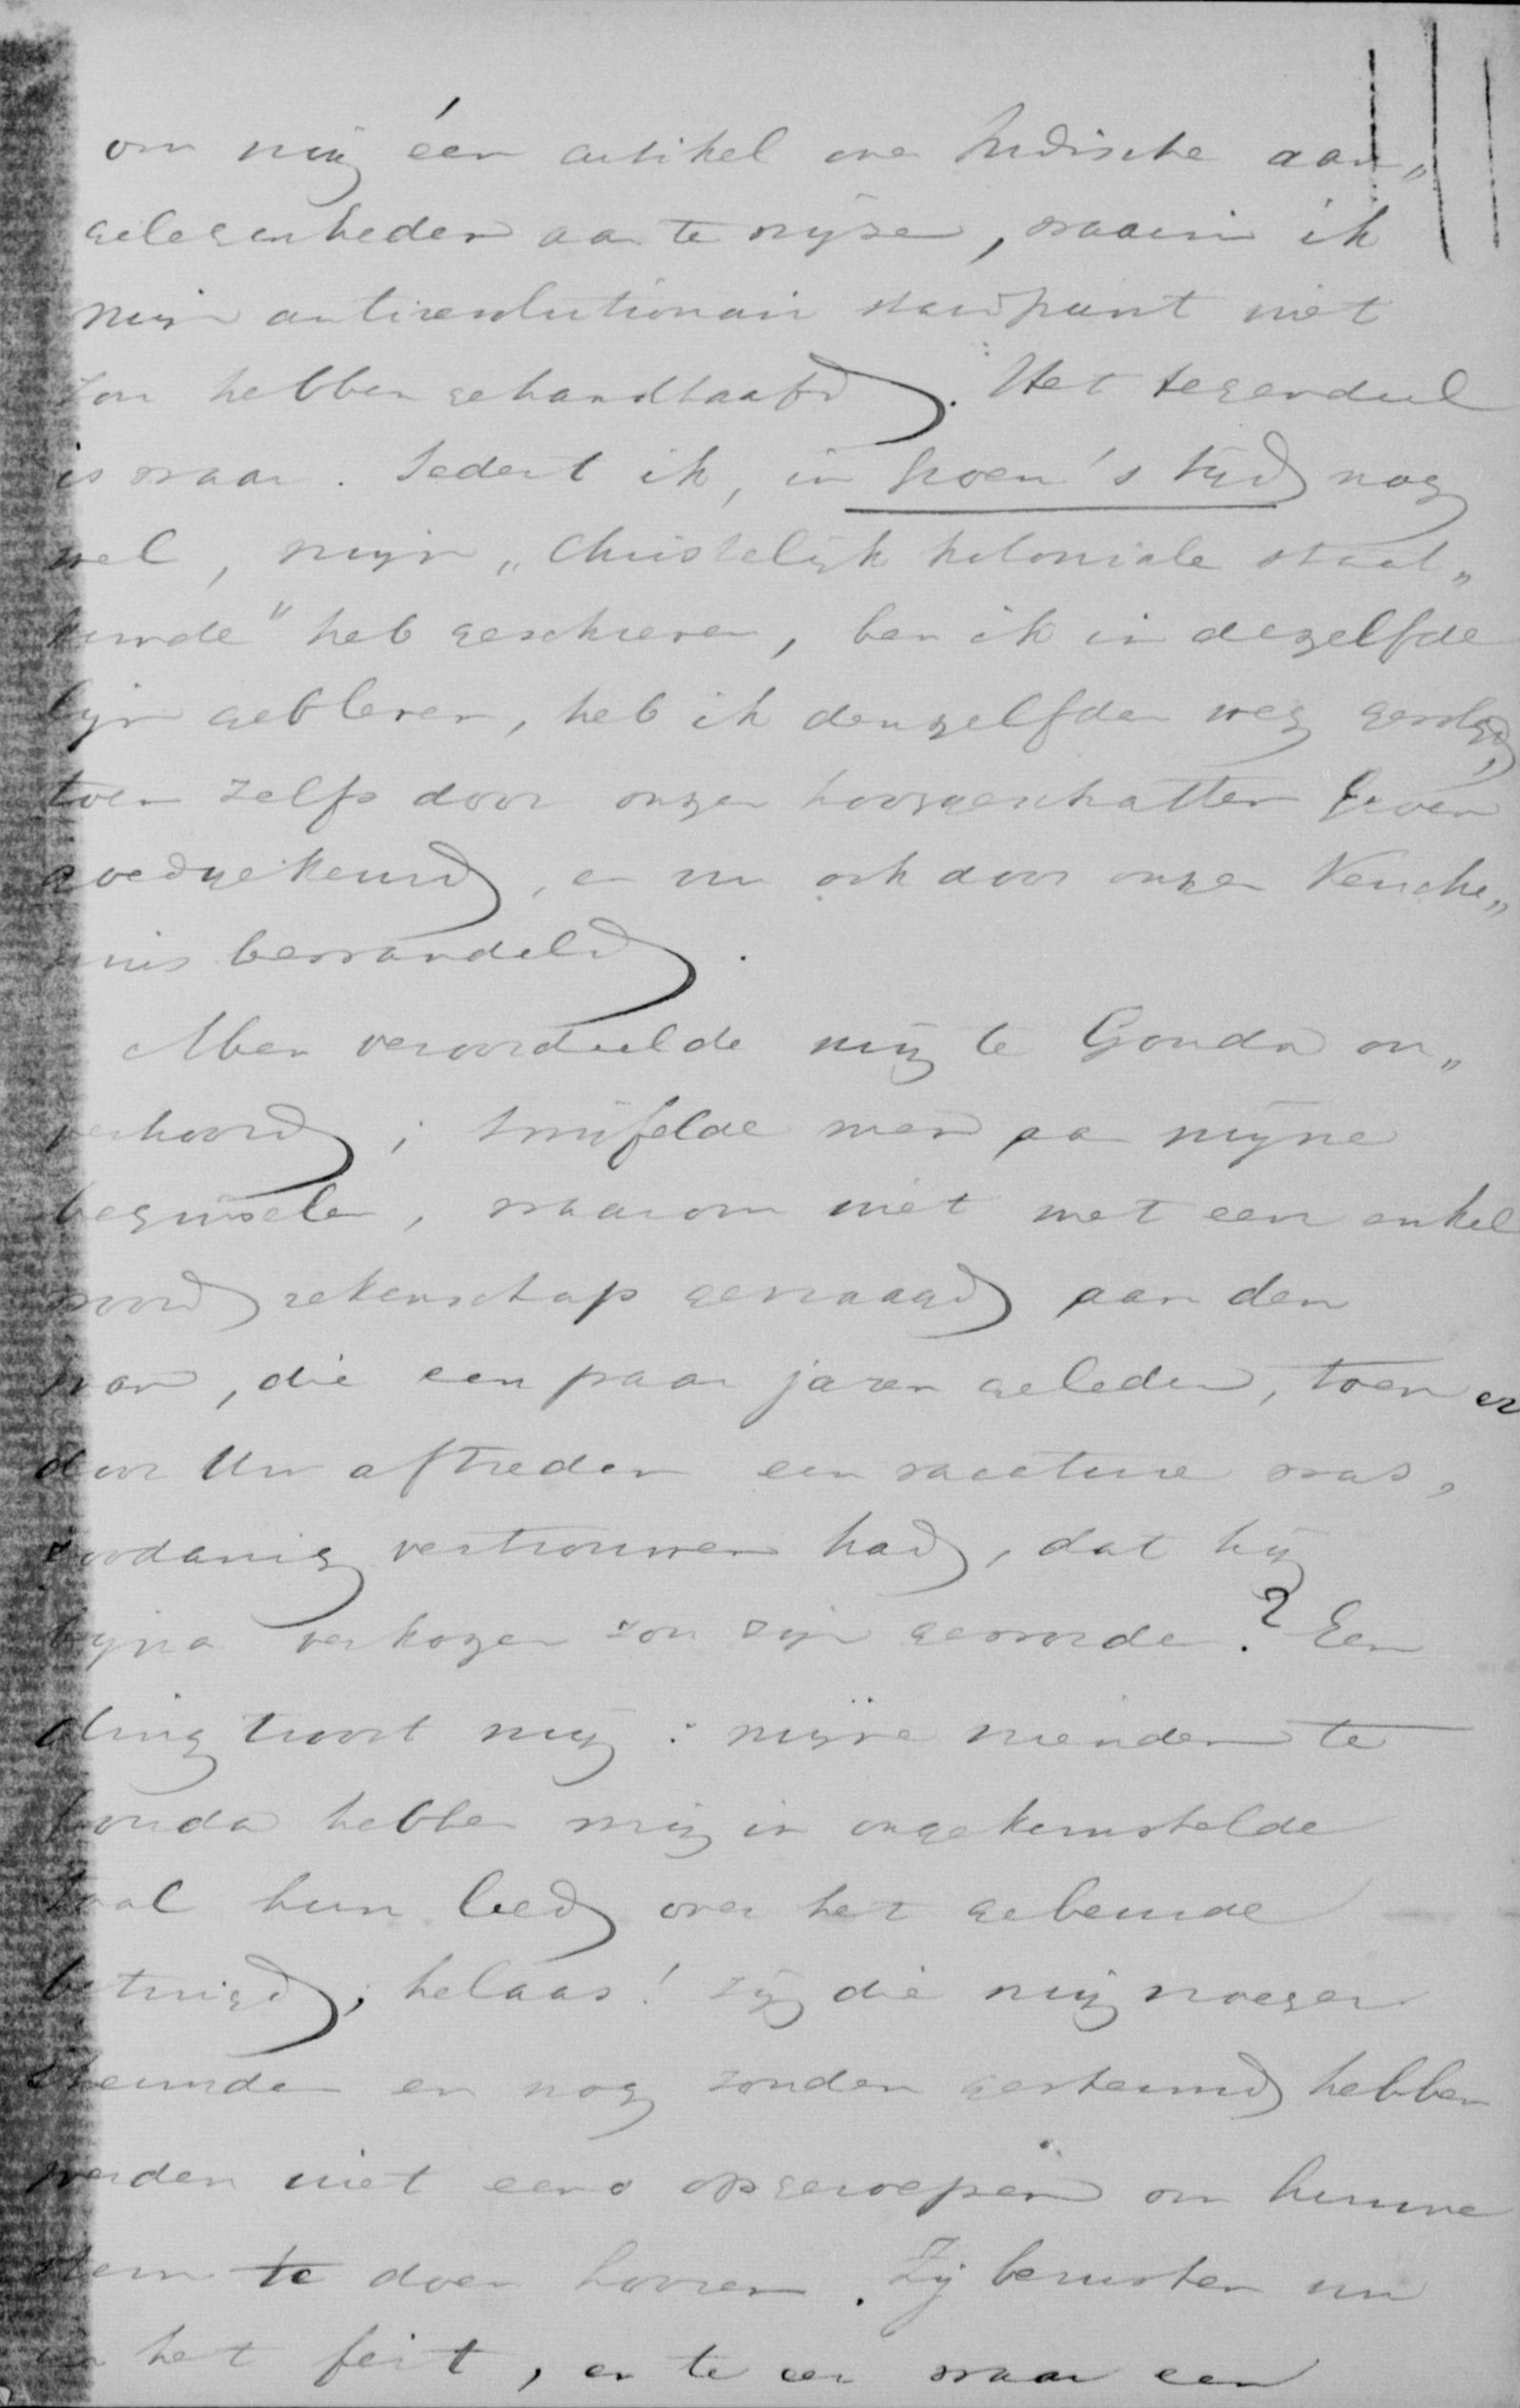 om mij één artikel over Indische aan„
gelegenheden aan te wijzen, waarin ik
mijn antirevolutionair standpunt niet
zou hebben gehandhaafd. Het tegendeel
is waar. Sedert ik, in Groen's tijd nog
wel, mijn „Christelijk koloniale staat„
kunde" heb geschreven, ben ik in dezelfde
lijn gebleven, heb ik denzelfden weg gevolgd,
toen zelfs door onzen hooggeschatten Groen
goedgekeurd, en nu ook door onzen Keuche„
nius bewandeld.
Men veroordeelde mij te Gouda on„
verhoord; twijfelde men aan mijne
beginselen, waarom niet met een enkel
woord rekenschap gevraagd aan den
man, die een paar jaren geleden, toen er
door Uw aftreden een vacature was,
zoodanig vertrouwen had, dat hij
bijna verkozen zou zijn geworden? Een
ding troost mij: mijne vrienden te
Gouda hebben mij in ongekunstelde
taal hun leed over het gebeurde
betuigd; helaas! zij die mij vroeger
steunden en nog zouden gesteund hebben
werden niet eens opgeroepen om hunne
stem te doen hooren. Zij berusten nu
in het feit, en te een waar een